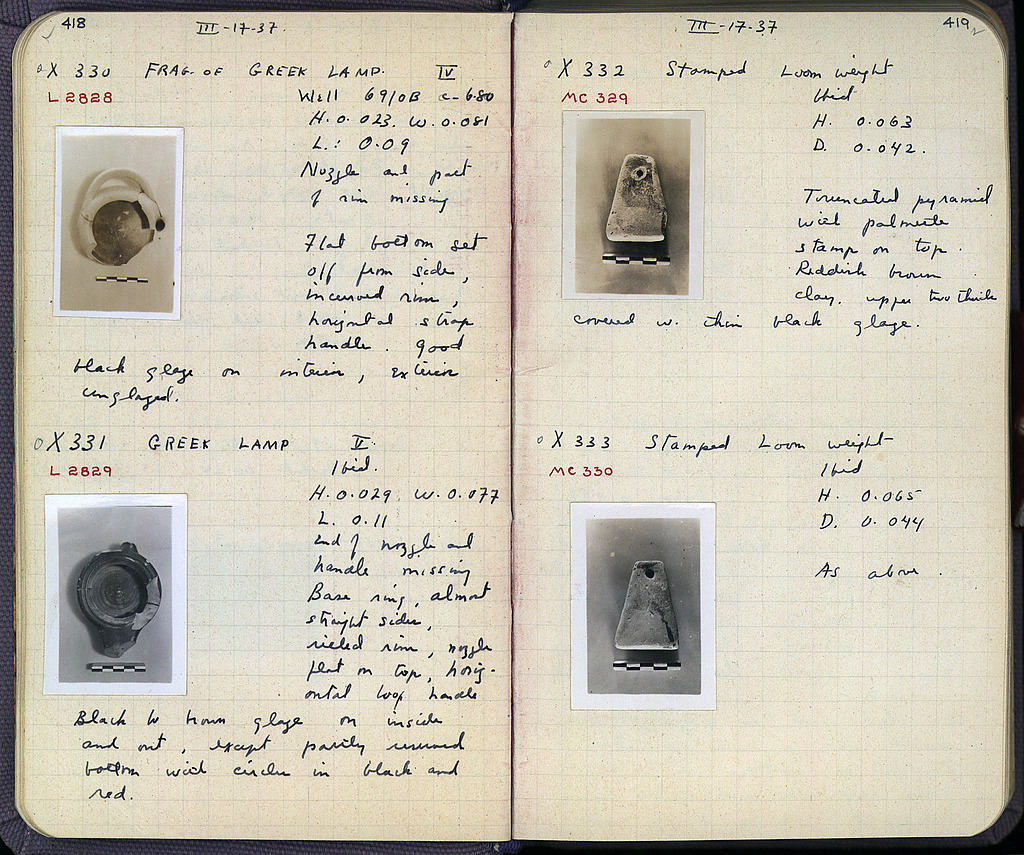 418
III-17-37.
X 330 FRAG. OF GREEK LAMP. IV
L 2828
Well 69/0B c-6.80
H. 0.023. W. 0.081
L.: 0.09
Nozzle and part
of rim missing
Flat bottom set
off from side,
incurved rim,
horizontal strap
handle. good
black glaze on interior, exterior
unglazed.
X 331 GREEK LAMP
L 2829
Ibid.
H. 0.029 W. 0.077
L. 0.11
End of nozzle and
handle missing
Base ring, almost
straight sides,
rim, nozzle
flat on top, horiz-
ontal loop handle
Black to brown glaze on inside
and out, except partly reserved
bottom with circles in black and
red.
419
III-17-37
X 332 Stamped Loom weight
MC 329
Ibid
H. 0.063
D. 0.042.
Truncated pyramid
with palmette
stamp on top.
Reddish brown
clay, upper two thirds
covered w. thin black glaze.
X 333 Stamped Loom weight
MC 330
Ibid
H. 0.065
D. 0.044
As above.